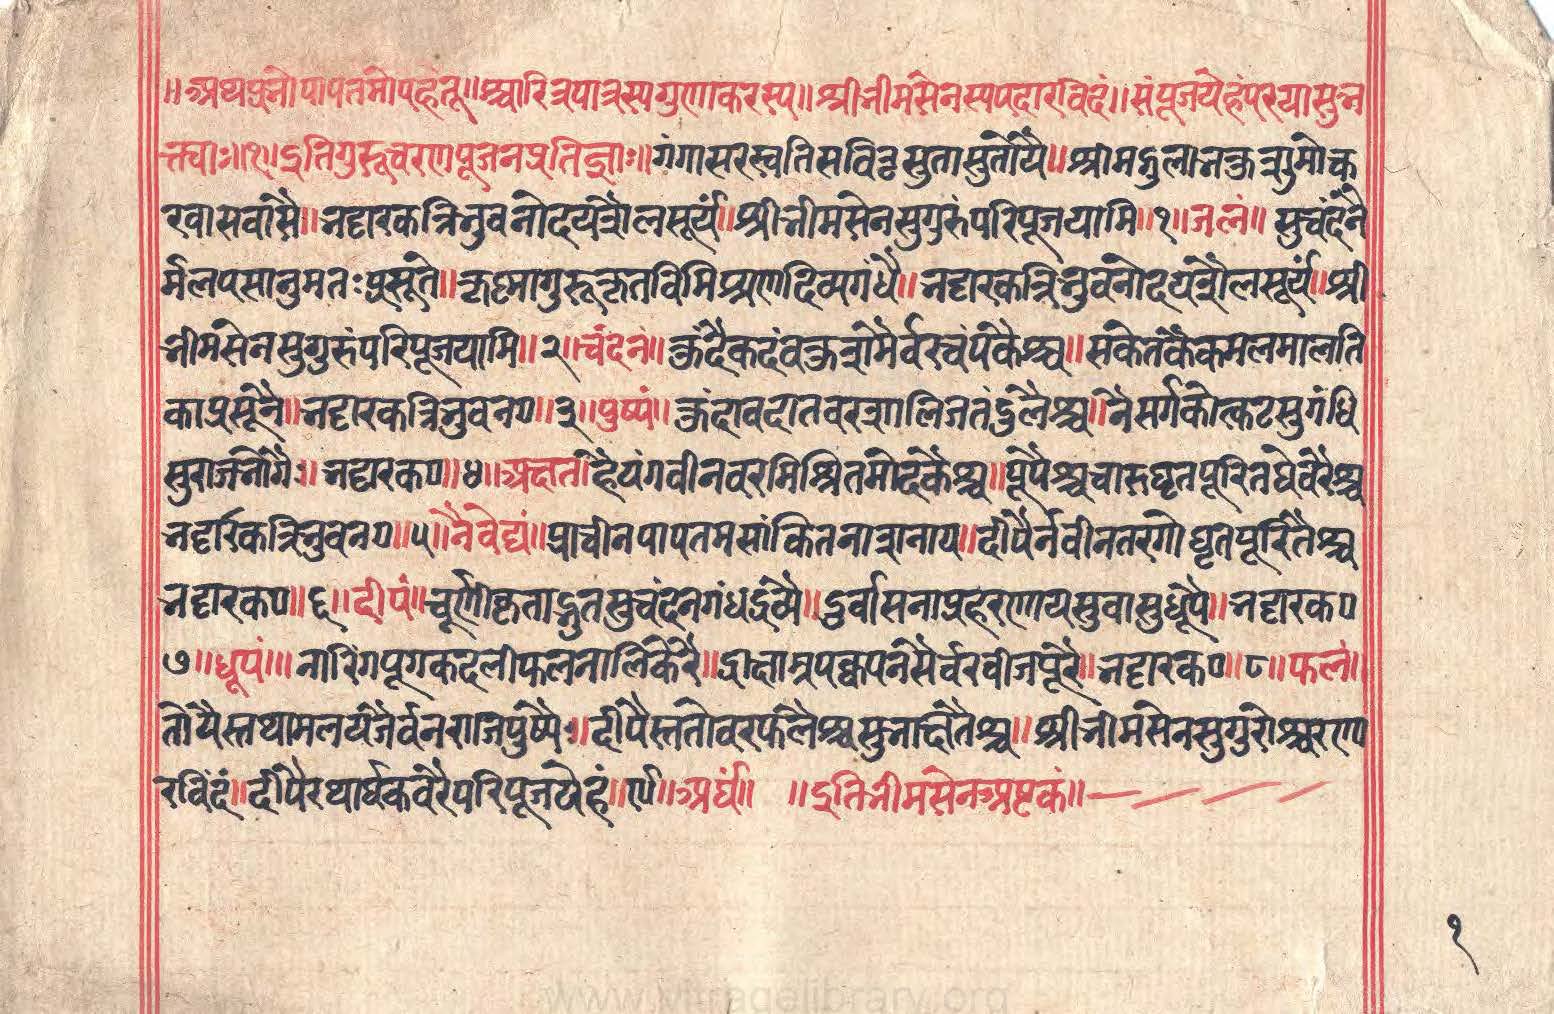 ॥अथप्रभोपापतमोपहंतू॥श्चारित्रपात्रस्यगुणाकरस्य॥श्रीभीमसेनस्यपदारविंदं॥संपूजयेहंपरयासुभ
क्त्याः॥१॥इतिगुरूचरणपूजनप्रतिज्ञाः॥गंगासरस्वतिसवित्रसुतासुतोयै॥श्रीम
रवासवासै॥भट्टारकत्रिभुवनोदयशैलसूर्यं॥श्रीभीमसेनसुगुरुंपरिपूजयामि॥१॥जलं॥सुचंदनै
र्मलयसानुमतःप्रसूतै॥कृष्णागुरूकृतविमिश्रणदिव्यगंधै॥भट्टारकत्रिभुवनोदयशैलसूर्यं॥श्री
भीमसेनसुगुरुंपरिपूजयामि॥२॥चंदनं॥कुंदैकदंवकुवरचंपकैश्च॥सकेतकैकमलमालति
काप्रसूनै॥भट्टारकत्रिभुवन०॥३॥पुष्पं॥कुंदावदातवरशालिजतंदुलैश्च॥नैसर्गकोत्कटसुगंधि
सुराजभोगैः॥भट्टारक०॥४॥अक्षतां॥हैयंगवीनवरमिश्रितमोदकैश्च॥पूपैश्चचारुघृतपूरितघेवरैश्च
भट्टारकत्रिभुवन०॥५॥नैवेद्यं॥प्राचीनपापतमसांकितनाशनाय॥दीपैर्नवीनतरगोघृतपूरितैश्च
भट्टारक०॥६॥दीपं॥चूर्णीकृताद्भुतसुचंदनगंधद्रव्यै॥दुर्वासनाप्रहरणायसुवासुधूपै॥भट्टारक०
७॥धूपं॥॥नारिंगपूगकदलीफलनालिकेरै॥द्राक्षाम्रपक्वपनसैर्वरवीजपूरै॥भट्टारक०॥८॥फलं॥
तोयैस्तथामलयजैर्वनराजपुष्पैः॥दीपैस्ततोवरफलैश्चसुभाक्षितैश्च॥श्रीभीमसेनसुगुरोश्चरण
रविंदं॥दीपैरथार्घकवरैपरिपूजयेहं॥९॥अर्घं॥ ॥इतिभीमसेनअष्टकं॥
१
www.viragelibrary.org